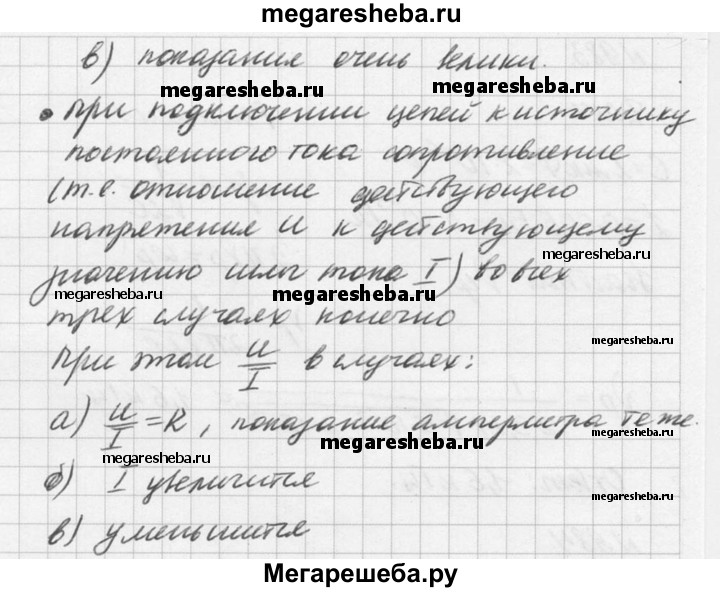 megaresheba.ru
в) показания очень велики.
megaresheba.ru megaresheba.ru
• при подключении цепей к источнику
постоянного тока сопротивление
(т.е. отношение действующего
напряжения U к действующему
megaresheba.ru
значению силы тока I) во всех
megaresheba.ru megaresheba.ru
трех случаях конечно
megaresheba.ru
при этом U/I в случаях:
а) U/I = R, показание амперметра те же.
megaresheba.ru megaresheba.ru
б) I увеличится
megaresheba.ru
в) уменьшится
Мегарешеба.ру